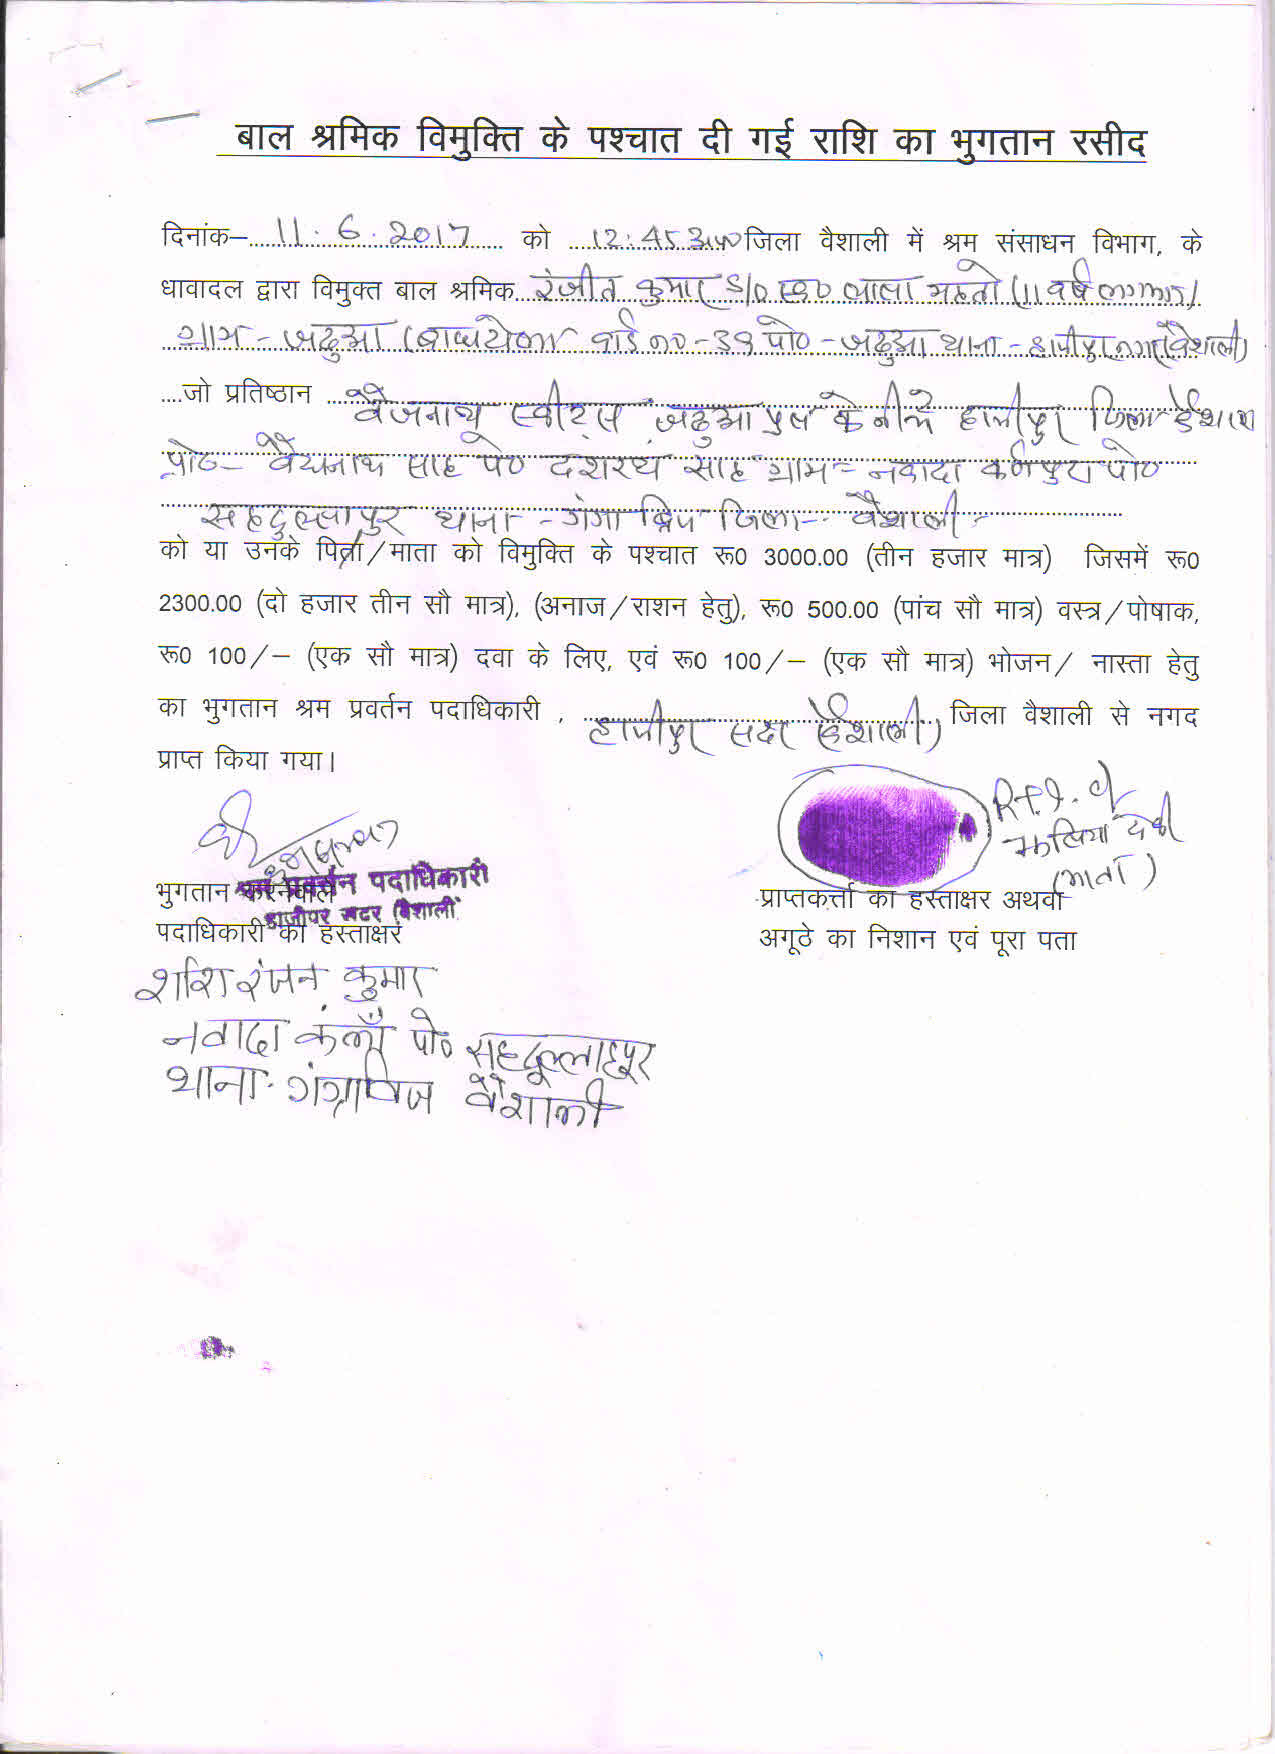 बाल श्रमिक विमुक्ति के पश्चात दी गई राशि का भुगतान रसीद
दिनांक– 11.6.2017 को 12:45 जिला वैशाली में श्रम संसाधन विभाग, के
धावादल द्वारा विमुक्त बाल श्रमिक रंजीत कुमार S/O स्व० लाला महतो (11 वर्ष
ग्राम - जढुआ वार्ड न० - 39 पो० - जढुआ थाना - हाजीपुर नगर (वैशाली)
....जो प्रतिष्ठान वैजनाथ स्वीट्स जढुआ पुल के नीचे हाजीपुर जिला वैशाली
प्रो०- वैद्यनाथ साह पे० दशरथ साह ग्राम - नवादा पो०
सहदुल्लापुर थाना - गंगा ब्रिज जिला - वैशाली -
को या उनके पिता/माता को विमुक्ति के पश्चात रू0 3000.00 (तीन हजार मात्र) जिसमें रू0
2300.00 (दो हजार तीन सौ मात्र), (अनाज/राशन हेतु), रू0 500.00 (पांच सौ मात्र) वस्त्र/पोषाक,
रू0 100/– (एक सौ मात्र) दवा के लिए, एवं रू0 100/– (एक सौ मात्र) भोजन/ नास्ता हेतु
का भुगतान श्रम प्रवर्तन पदाधिकारी , हाजीपुर सदर (वैशाली) जिला वैशाली से नगद
प्राप्त किया गया।
R.T.I. of
देवी
(माता)
श्रम प्रवर्तन पदाधिकारी
हाजीपुर सदर (वैशाली)
भुगतान करनेवाले
पदाधिकारी का हस्ताक्षर
प्राप्तकर्त्ता का हस्ताक्षर अथवा
अगूठे का निशान एवं पूरा पता
शशि रंजन कुमार
नवादा कलाँ पो० सहदूल्लाहपूर
थाना- गंगाब्रिज वैशाली